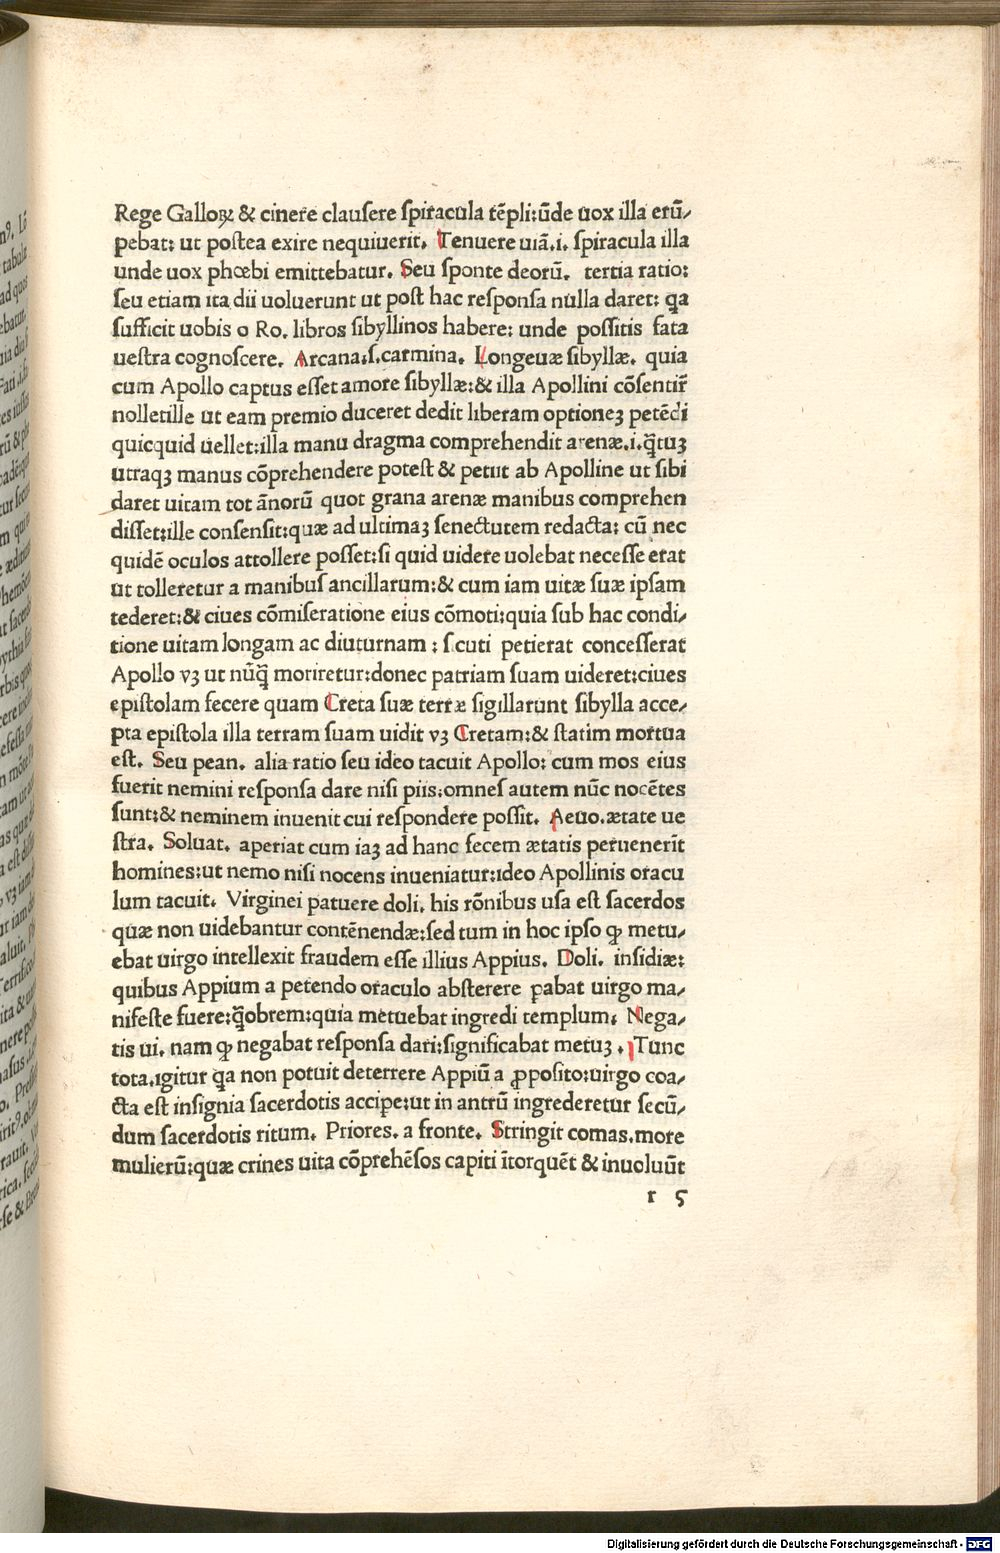 Rege Galloꝝ & cinere clausere spiracula tẽpli:ũde uox illa erũ/
pebat: ut postea exire nequiuerit. Tenuere uiã.i. spiracula illa
unde uox phœbi emittebatur. Seu sponte deorũ. tertia ratio:
seu etiam ita dii uoluerunt ut post hac responsa nulla daret: q̃a
sufficit uobis o Ro. libros sibyllinos habere: unde possitis fata
uestra cognoscere. Arcana.s.carmina. Longeuæ sibyllæ. quia
cum Apollo captus esset amore sibyllæ:& illa Apollini cõsentir̃
nolletille ut eam premio duceret dedit liberam optioneꝫ petẽdi
quicquid uellet:illa manu dragma comprehendit arenæ.i.q̃tuꝫ
utraqꝫ manus cõprehendere potest & petiit ab Apolline ut sibi
daret uitam tot ãnorũ quot grana arenæ manibus comprehen
disset:ille consensit:quæ ad ultimaꝫ senectutem redacta: cũ nec
quidẽ oculos attollere posset:si quid uidere uolebat necesse erat
ut tolleretur a manibus ancillarum:& cum iam uitæ suæ ipsam
tederet:& ciues cõmiseratione eius cõmoti:quia sub hac condi/
tione uitam longam ac diuturnam : sicuti petierat concesserat
Apollo vꝫ ut nũq̃ moriretur:donec patriam suam uideret:ciues
epistolam fecere quam Creta suæ terræ sigillarunt sibylla acce/
pta epistola illa terram suam uidit vꝫ Cretam:& statim mortua
est. Seu pean. alia ratio seu ideo tacuit Apollo: cum mos eius
fuerit nemini responsa dare nisi piis:omnes autem nũc nocẽtes
sunt:& neminem inuenit cui respondere possit. Aeuo.ætate ue
stra. Soluat. aperiat cum iaꝫ ad hanc fecem ætatis peruenerĩt
homines:ut nemo nisi nocens inueniatur:ideo Apollinis oracu
lum tacuit. Virginei patuere doli. his rõnibus usa est sacerdos
quæ non uidebantur contẽnendæ:sed tum in hoc ipso ꝙ metu/
ebat uirgo intellexit fraudem esse illius Appius. Doli. insidiæ:
quibus Appium a petendo oraculo absterere ꝓabat uirgo ma/
nifeste fuere:q̃obrem:quia metuebat ingredi templum. Nega/
tis ui. nam ꝙ negabat responsa dari:significabat metuꝫ. Tunc
tota.igitur q̃a non potuit deterrere Appiũ a ꝓposito:uirgo coa/
cta est insignia sacerdotis accipe:ut in antrũ ingrederetur secũ/
dum sacerdotis ritum. Priores. a fronte. Stringit comas.more
mulierũ:quæ crines uita cõprehẽsos capiti ĩtorquẽt & inuoluũt
r 5
Digitalisierung gefördert durch die Deutsche Forschungsgemeinschaft - DFG